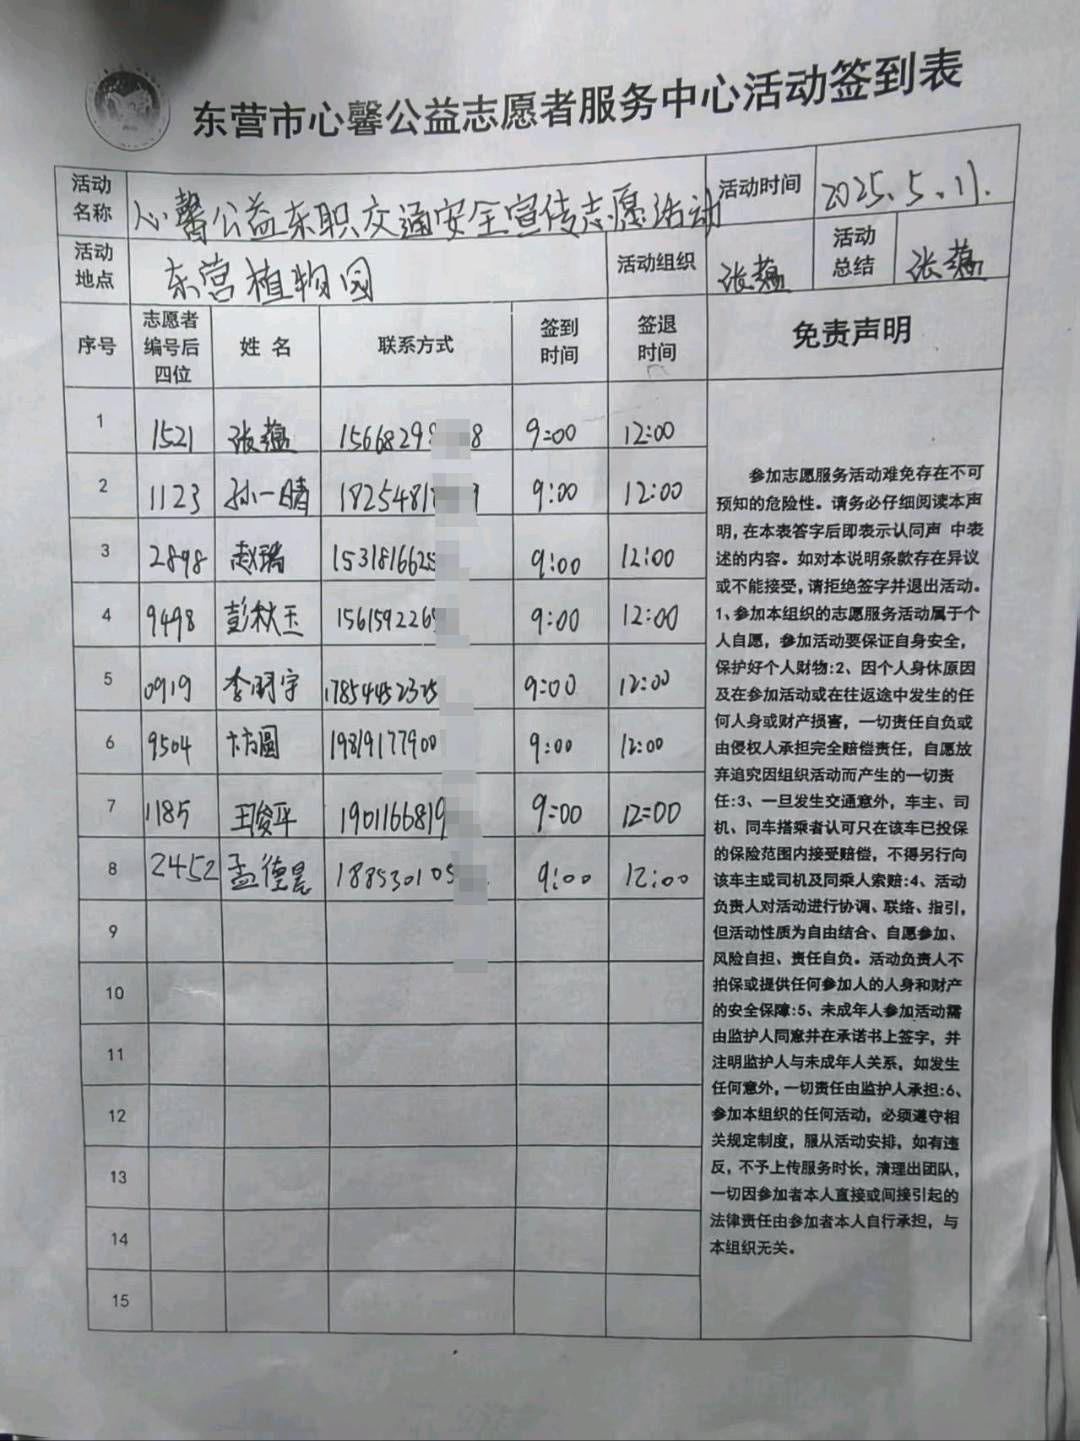 东营市心馨公益志愿者服务中心活动签到表
活动名称 心馨公益东职交通安全宣传志愿活动 活动时间 2025.5.11.
活动地点 东营植物园 活动组织 张蕴 活动总结 张蕴
序号 志愿者编号后四位 姓名 联系方式 签到时间 签退时间 免责声明
1 1521 张蕴 15668299 8 9:00 12:00
2 1123 孙一晴 18254818 9:00 12:00
3 2898 赵瑞 1531816625 9:00 12:00
4 9498 彭秋玉 156159226 9:00 12:00
5 0919 李羽宇 17854452375 9:00 12:00
6 9504 卞方圆 19819177900 9:00 12:00
7 1185 王俊平 1901166819 9:00 12:00
8 2452 孟德昊 188530105 9:00 12:00
9
10
11
12
13
14
15
参加志愿服务活动难免存在不可
预知的危险性。请务必仔细阅读本声
明,在本表答字后即表示认同声 中表
述的内容。如对本说明条款存在异议
或不能接受,请拒绝签字并退出活动。
1、参加本组织的志愿服务活动属于个
人自愿，参加活动要保证自身安全,
保护好个人财物:2、因个人身休原因
及在参加活动或在往返途中发生的任
何人身或财产损害，一切责任自负或
由侵权人承担完全赔偿责任，自愿放
弃追究因组织活动而产生的一切责
任:3、一旦发生交通意外，车主、司
机、同车搭乘者认可只在该车已投保
的保险范围内接受赔偿，不得另行向
该车主或司机及同乘人索赔:4、活动
负责人对活动进行协调、联络、指引，
但活动性质为自由结合、自愿参加、
风险自担、责任自负。活动负责人不
拍保或提供任何参加人的人身和财产
的安全保障:5、未成年人参加活动需
由监护人同意并在承诺书上签字，并
注明监护人与未成年人关系，如发生
任何意外，一切责任由监护人承担:6、
参加本组织的任何活动，必须遵守相
关规定制度，服从活动安排，如有违
反，不予上传服务时长，清理出团队，
一切因参加者本人直接或间接引起的
法律责任由参加者本人自行承担，与
本组织无关。